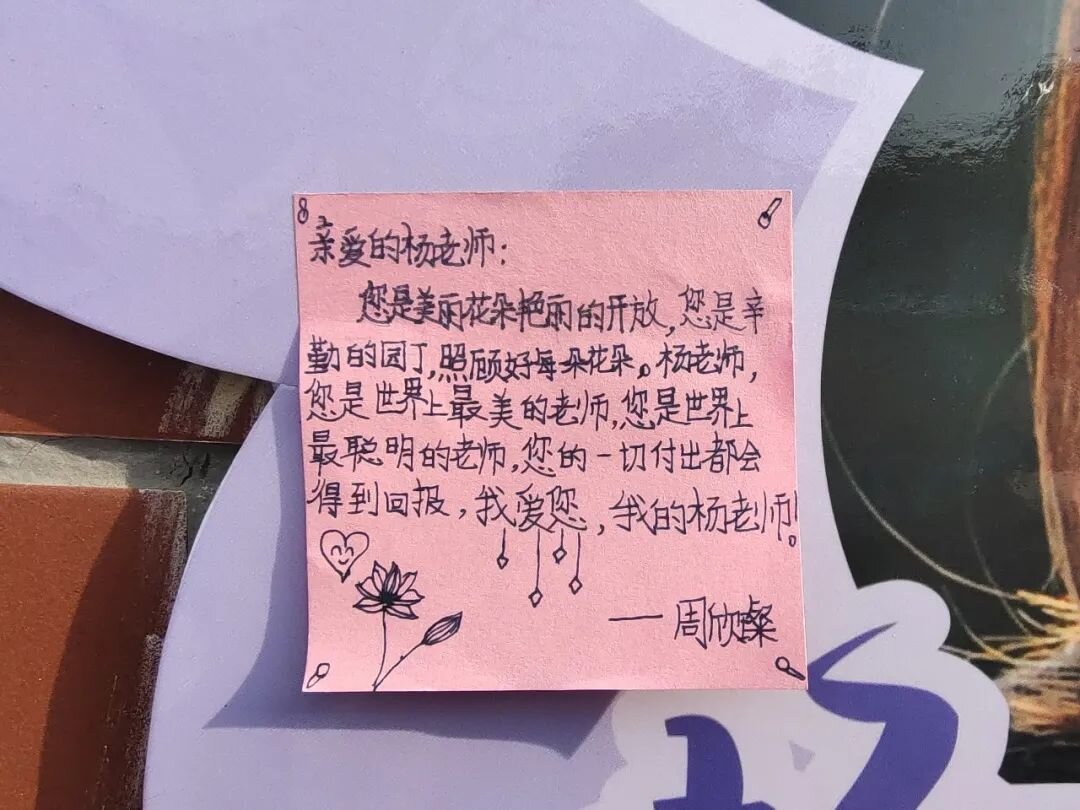 亲爱的杨老师：
您是美丽花朵艳丽的开放，您是辛
勤的园丁，照顾好每朵花朵。杨老师，
您是世界上最美的老师，您是世界上
最聪明的老师，您的一切付出都会
得到回报，我爱您，我的杨老师！
——周欣燦